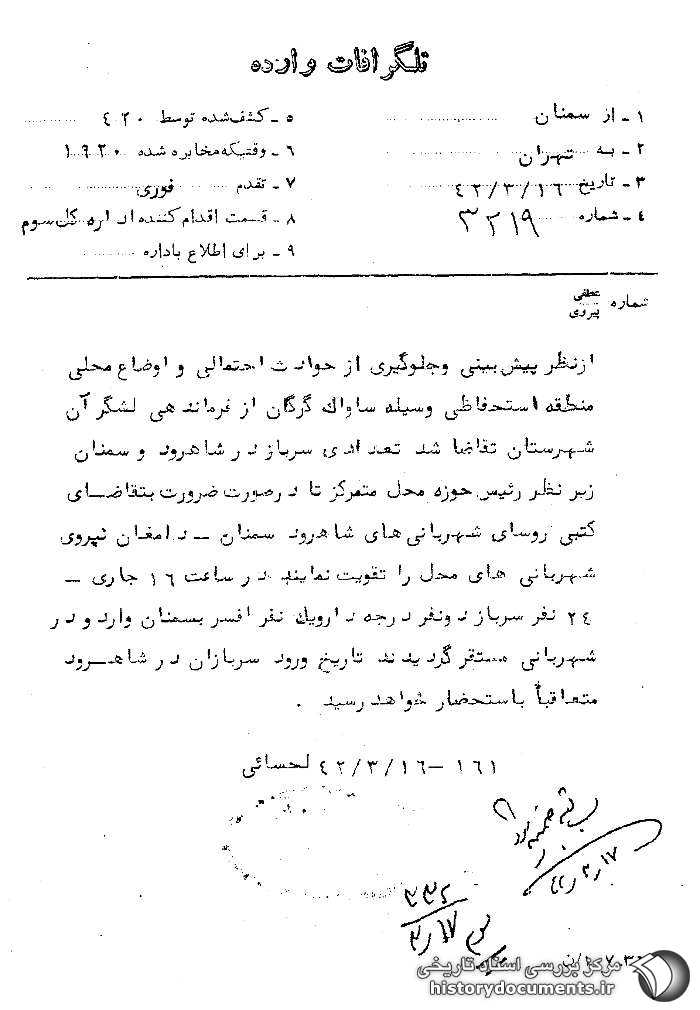 تلگرافات وارده
۱ ـ از سمنان
۲ ـ به تهران
۳ ـ تاریخ ۴۲/۳/۱۶
۴ ـ شماره ۳۲۱۹
۵ ـ کشف‌شده توسط ۴۲۰
۶ ـ وقتیکه مخابره شده ۱۹۲۰
۷ ـ تقدم فوری
۸ ـ قسمت اقدام کننده اداره کل سوم
۹ ـ برای اطلاع باداره
شماره عطفی
پیروی
ازنظر پیش بینی وجلوگیری از حوادث احتمالی و اوضاع محلی
منطقه استحفاظی وسیله ساواک گرگان از فرماندهی لشگر آن
شهرستان تقاضا شد تعدادی سرباز در شاهرود و سمنان
زیر نظر رئیس حوزه محل متمرکز تا درصورت ضرورت بتقاضای
کتبی روسای شهربانی‌های شاهرود سمنان ـ دامغان نیروی
شهربانی های محل را تقویت نمایند در ساعت ۱۶ جاری ـ
۲۴ نفر سرباز دونفر درجه دارویک نفر افسر بسمنان وارد و در
شهربانی مستقر گردیدند تاریخ ورود سربازان در شاهرود
متعاقباً باستحضار خواهد رسید .
۱۶۱ ـ ۴۲/۳/۱۶ لحسائی
۴۲/۳/۱۷
۳۳۲
۳/۱۷
مرکز بررسی اسناد تاریخی
historydocuments.ir